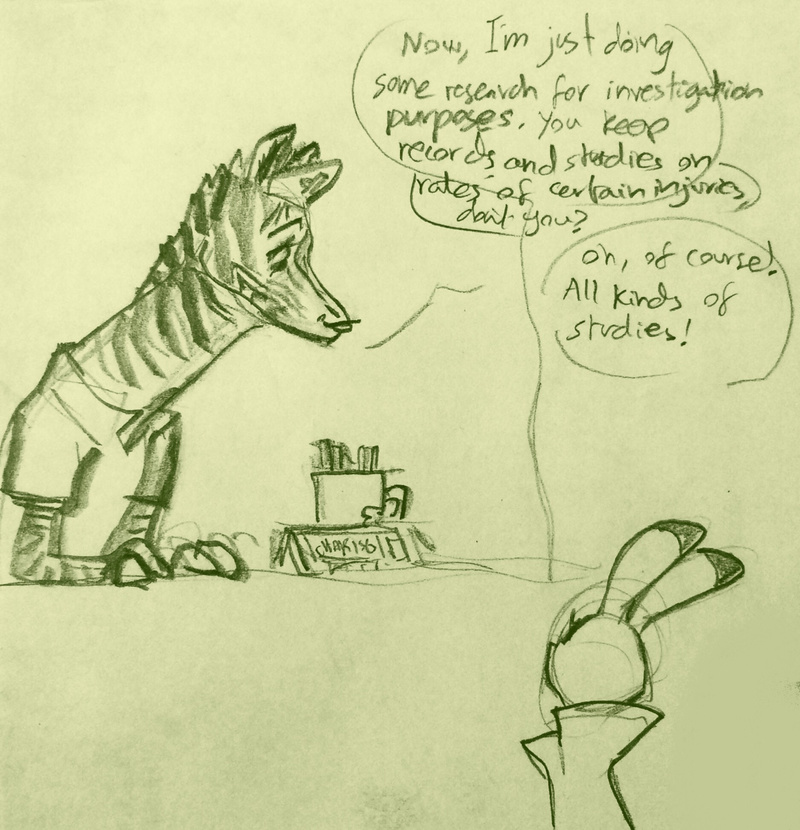 Now, I'm just doing
some research for investigation
purposes. You keep
records and studies on
rates of certain injuries,
don't you?
oh, of course!
All kinds of
studies!